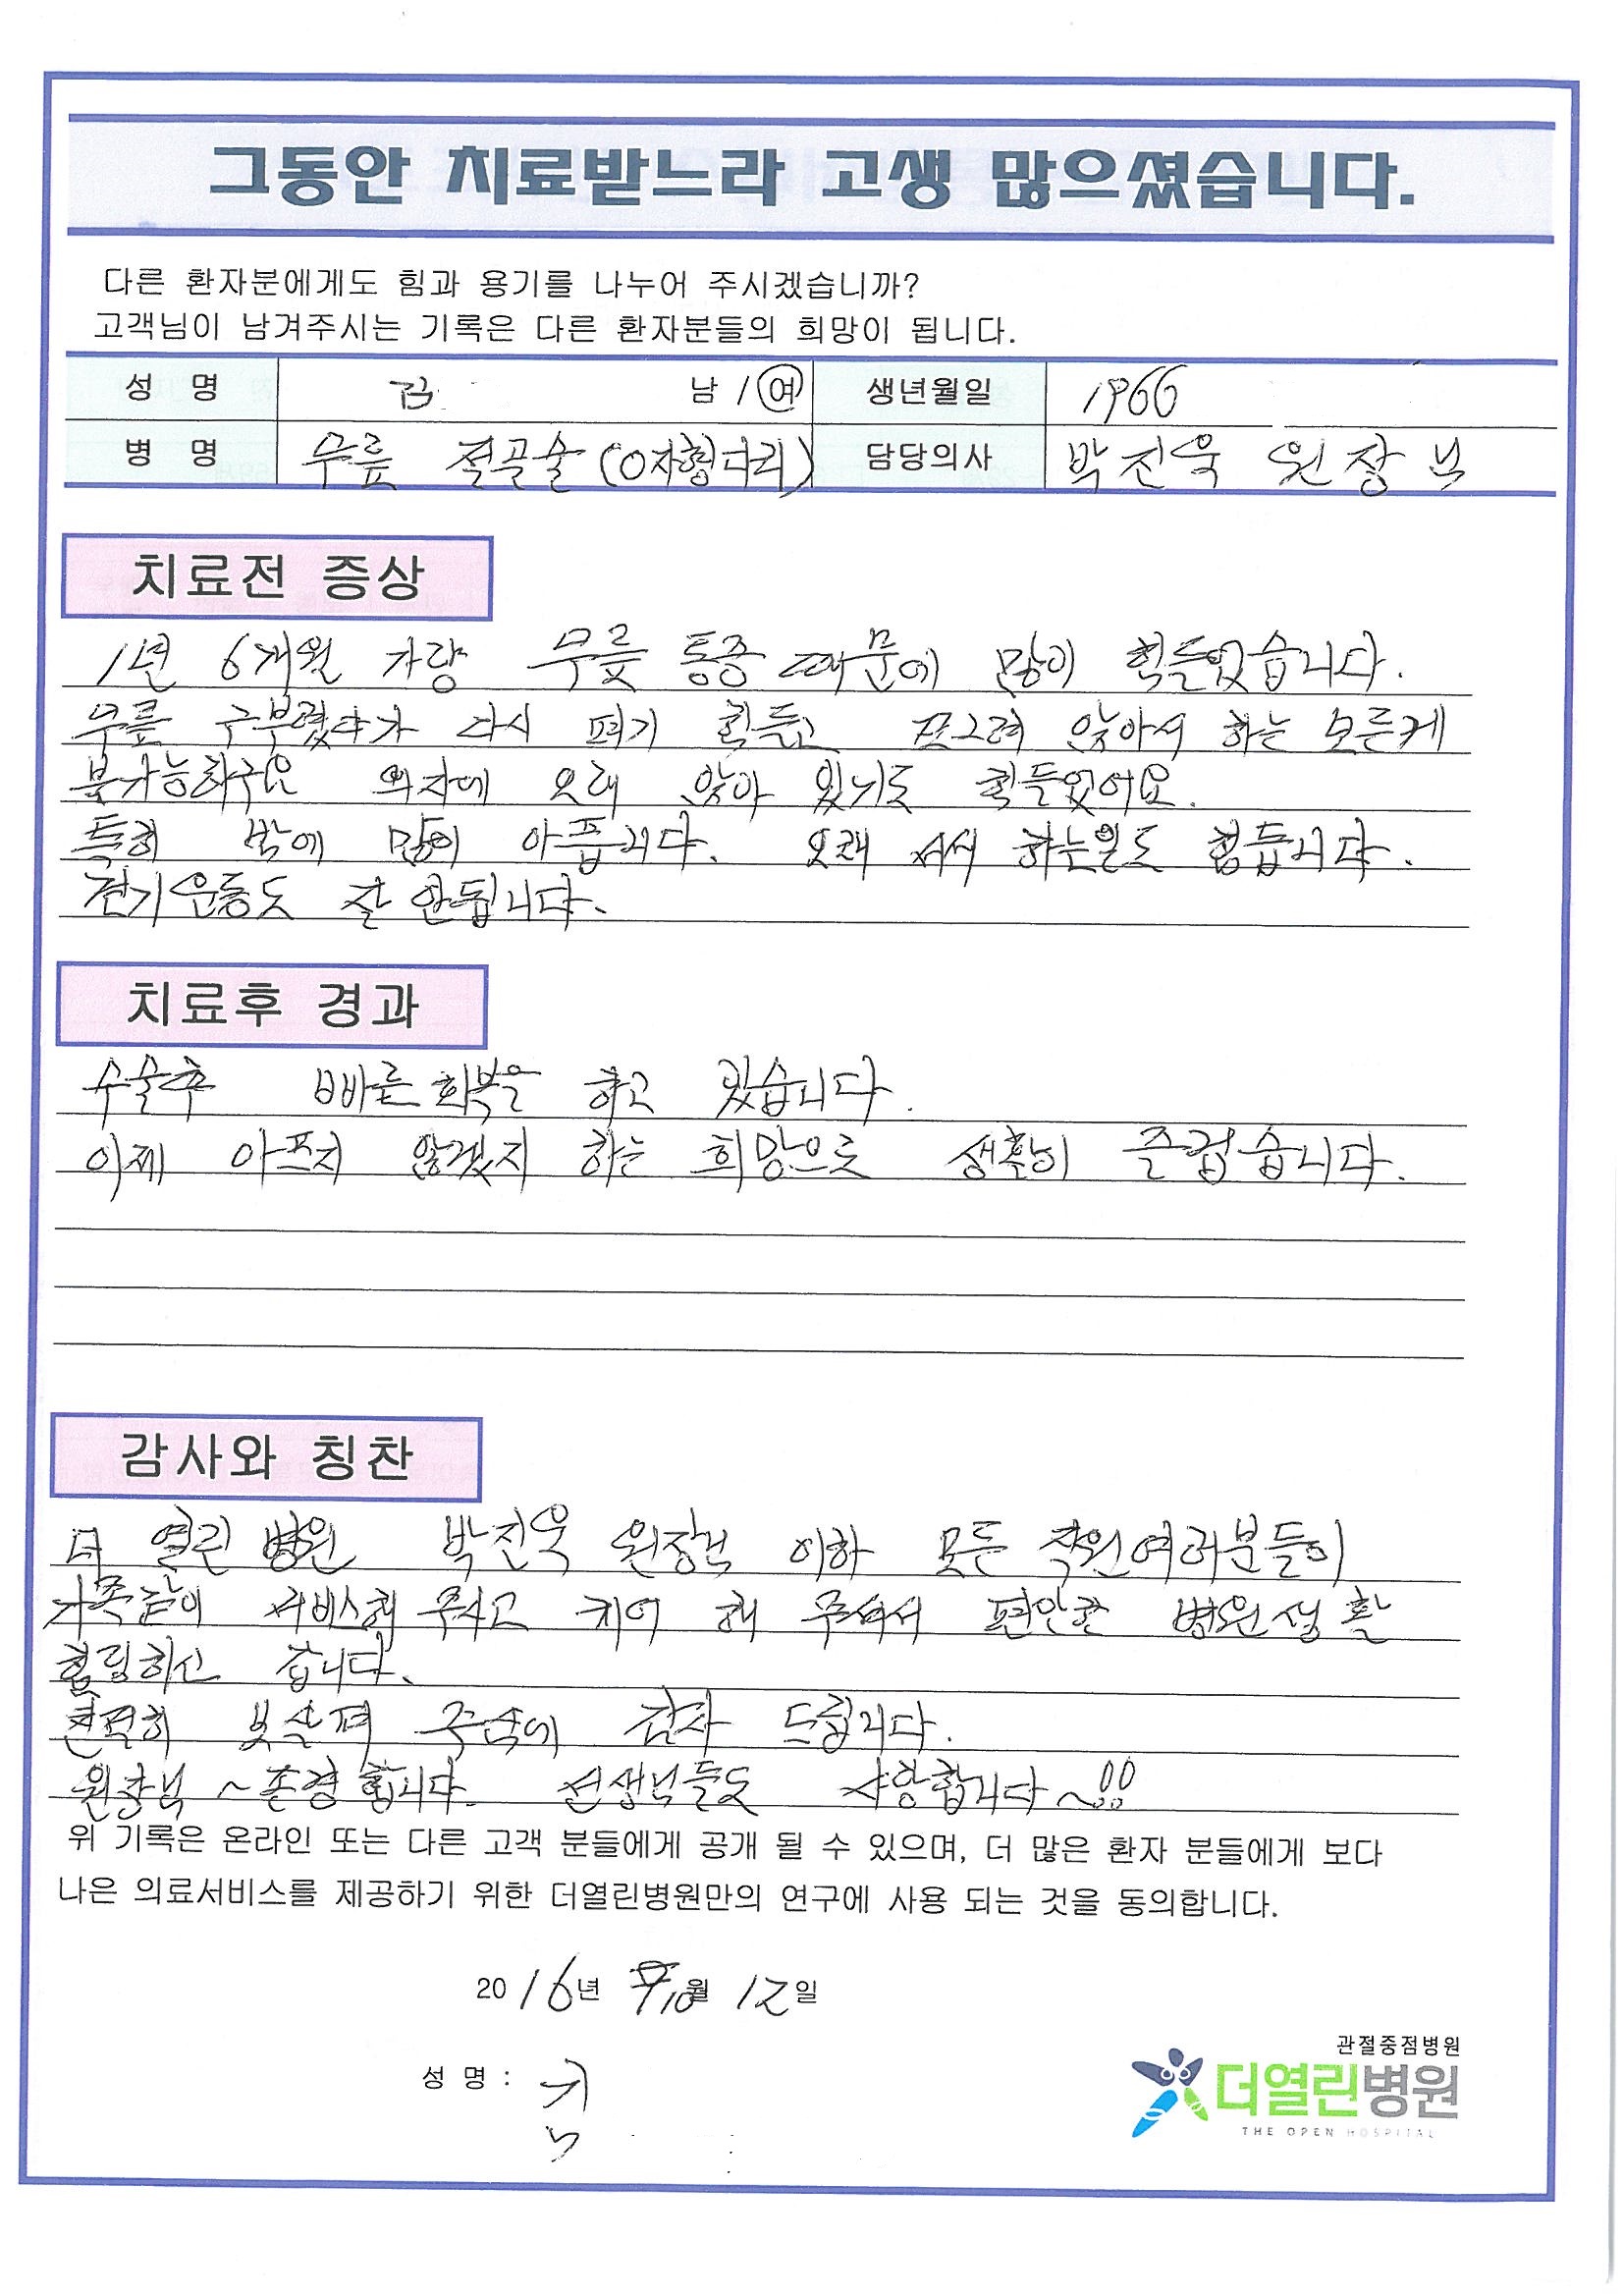 그동안 치료받느라 고생 많으셨습니다.
다른 환자분에게도 힘과 용기를 나누어 주시겠습니까?
고객님이 남겨주시는 기록은 다른 환자분들의 희망이 됩니다.
성 명 김 남 / 여 생년월일 1966
병 명 무릎 절골술(O자형다리) 담당의사 박진욱 원장님
치료전 증상
1년 6개월 가량 무릎 통증 때문에 많이 힘들었습니다.
무릎 구부렸다가 다시 펴기 힘들고 쪼그려 앉아서 하는 모든게
불가능하구요 의자에 오래 앉아 있기도 힘들었어요.
특히 밤에 많이 아픕니다. 오래 서서 하는일도 힘듭니다.
걷기운동도 잘 안됩니다.
치료후 경과
수술후 빠른회복을 하고 있습니다.
이제 아프지 않겠지 하는 희망으로 생활이 즐겁습니다.
감사와 칭찬
더 열린병원 박진욱 원장님 이하 모든 직원여러분들이
가족같이 서비스해 주시고 케어 해 주셔서 편안한 병원생활
힐링하고 갑니다.
친절히 보살펴 주심에 감사 드립니다.
원장님 ~존경합니다. 선생님들도 사랑합니다~!!
위 기록은 온라인 또는 다른 고객 분들에게 공개 될 수 있으며, 더 많은 환자 분들에게 보다
나은 의료서비스를 제공하기 위한 더열린병원만의 연구에 사용 되는 것을 동의합니다.
2016년 10월 12일
성 명 : 김
관절중점병원
더열린병원
THE OPEN HOSPITAL